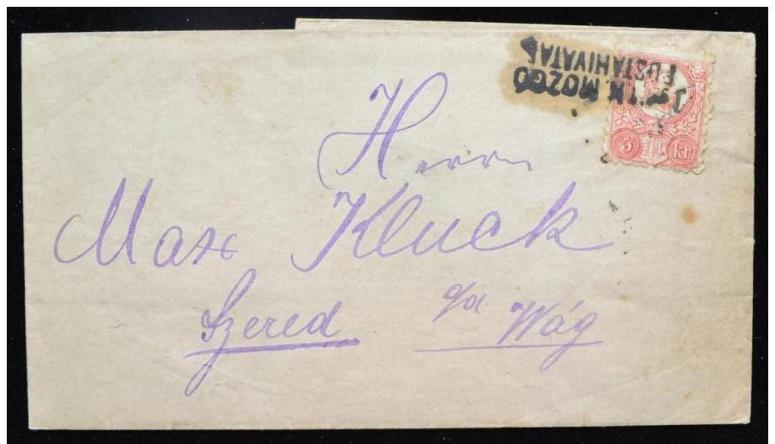 MOZGÓ
POSTAHIVATAL
5 Kr
Herrn
Max Kluck
Szered a/d Wág